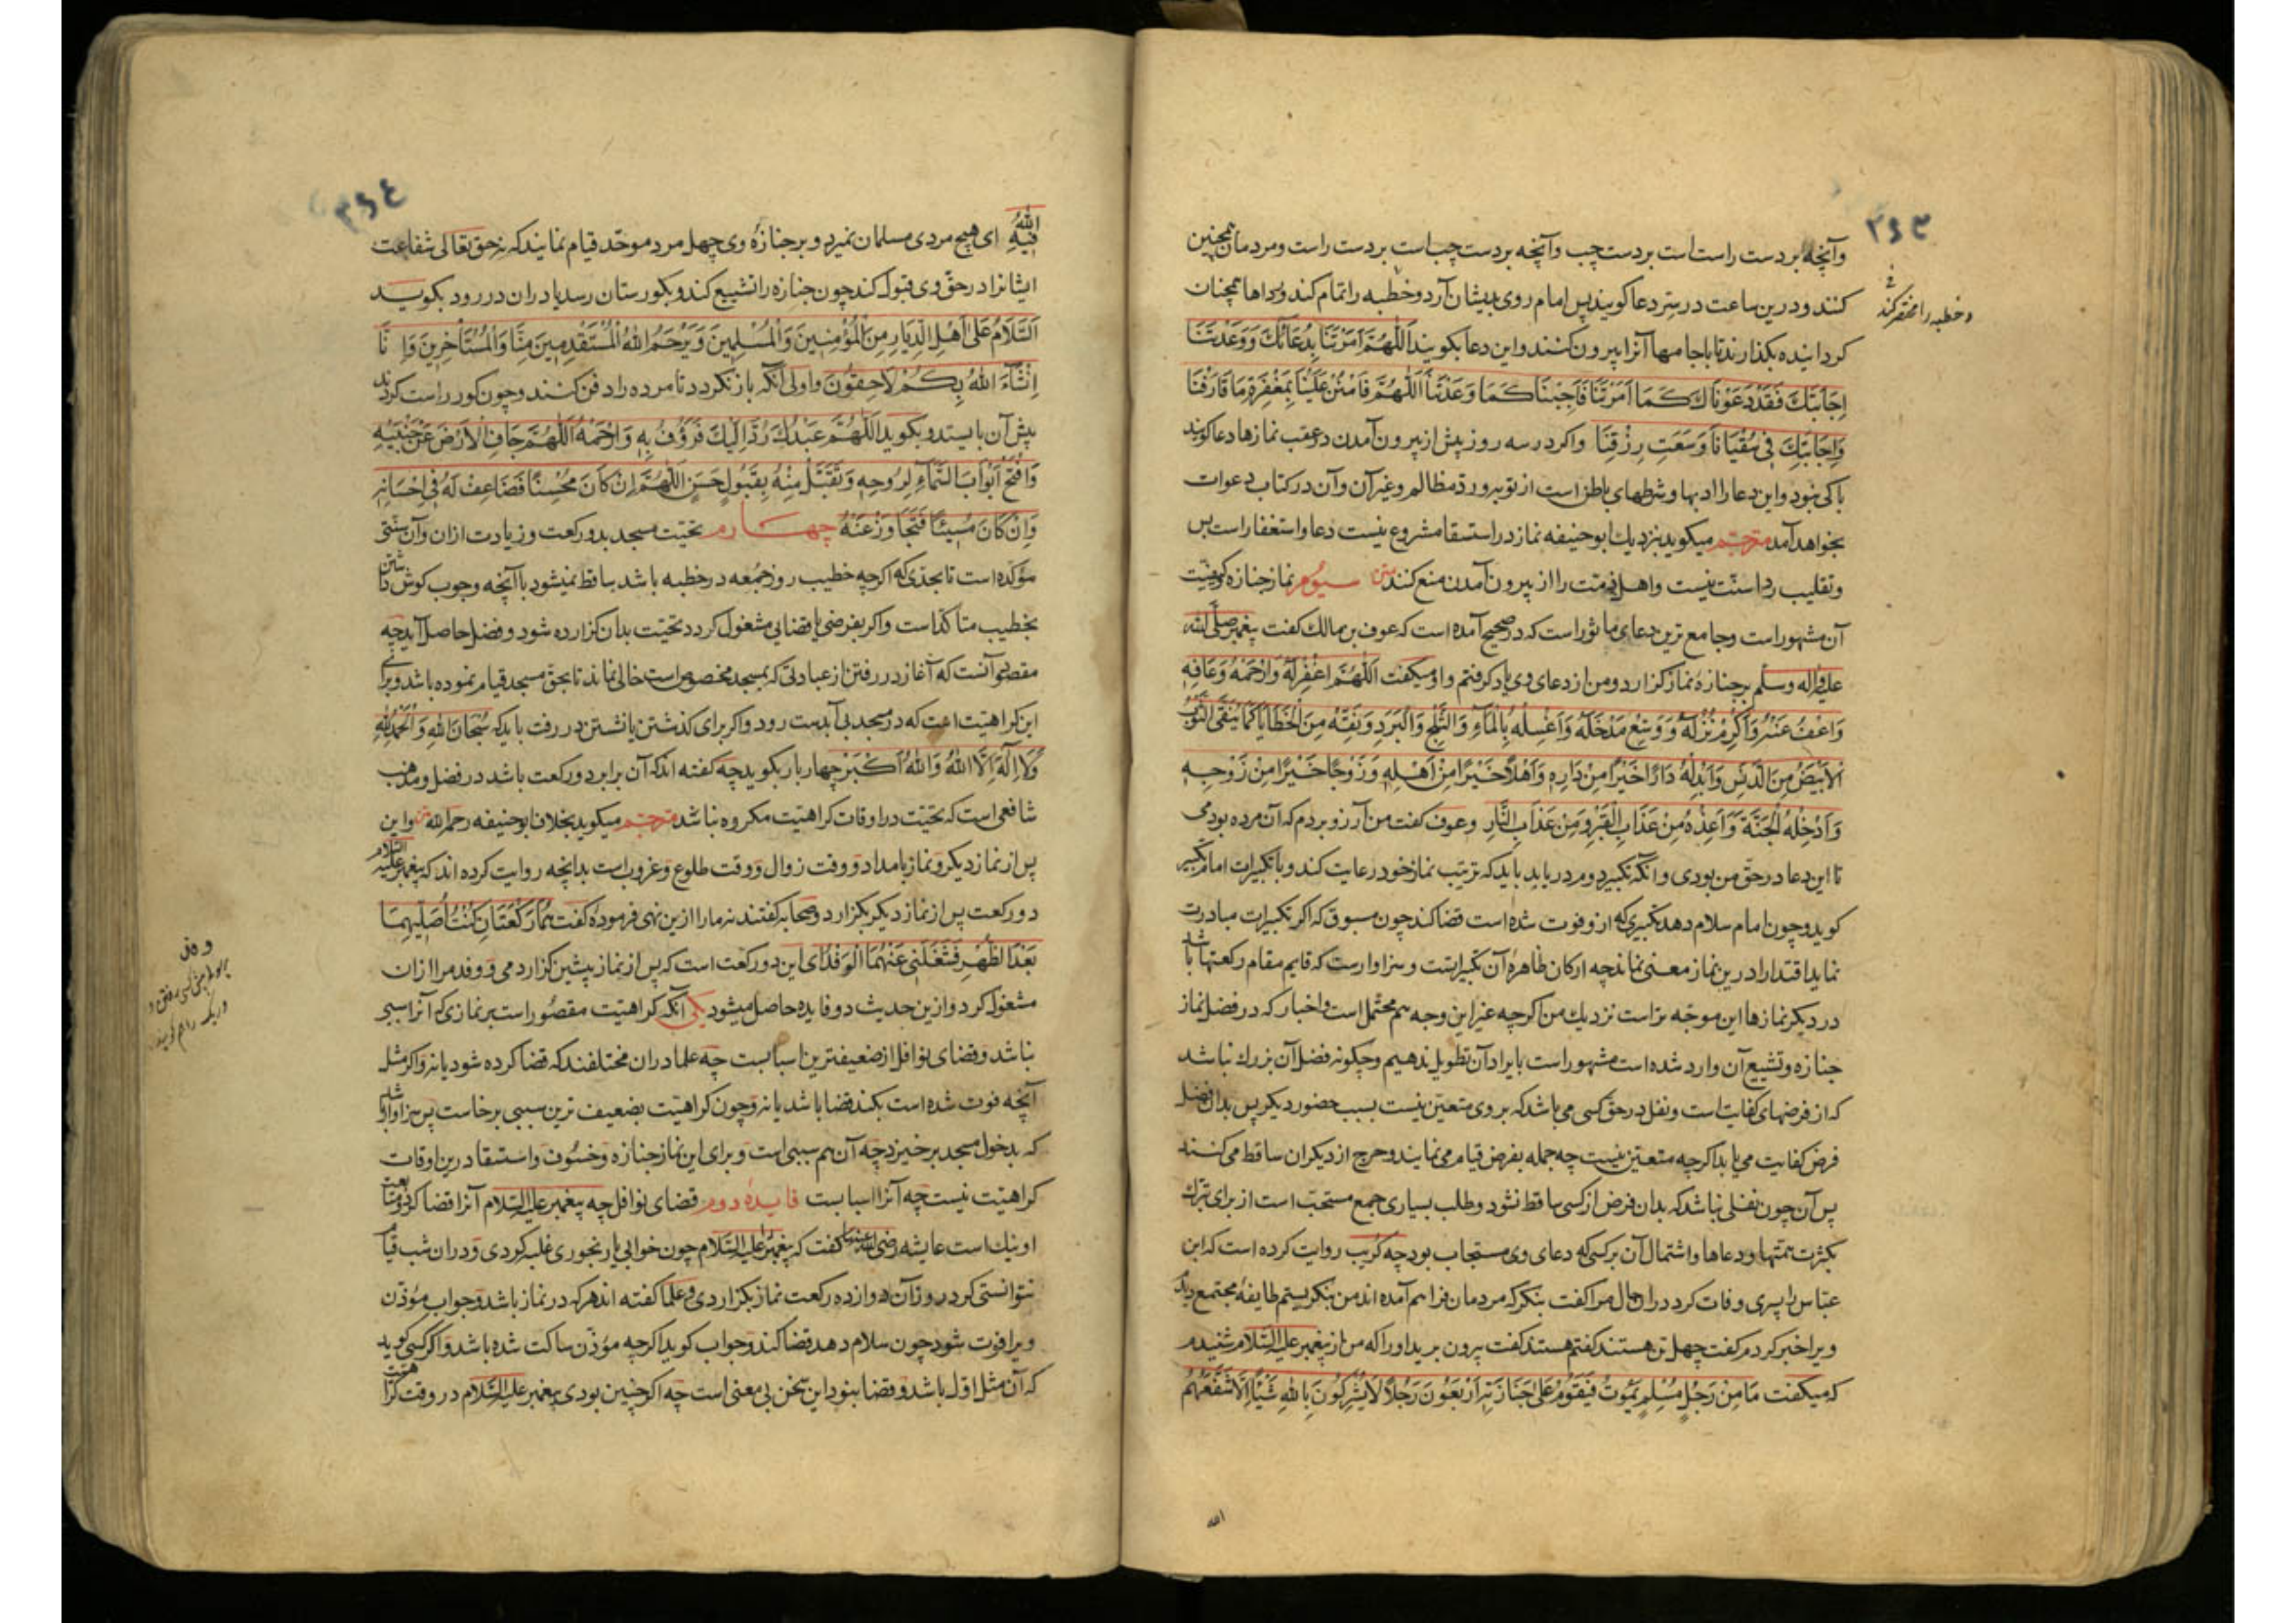 ۳۶۳
وآنچه بر دست راست است بر دست چپ وآنچه بر دست چپ است بر دست راست ومردمان همچنین
کنند ودرین ساعت در سر دعا کویند پس امام روی بدیشان آرد وخطبه را تمام کند ورداها همچنان
وخطبه را مختصر کند
کردانیده بکذارند تا باجامها آنرا بیرون کنند واین دعا بکویند اَللّٰهُمَّ اَمَرْتَنَا بِدُعَائِكَ وَوَعَدْتَنَا
اِجَابَتَكَ فَقَدْ دَعَوْنَاكَ كَمَا اَمَرْتَنَا فَاَجِبْنَا كَمَا وَعَدْتَنَا اَللّٰهُمَّ فَامْنُنْ عَلَيْنَا بِمَغْفِرَةِ مَا قَارَفْنَا
وَاِجَابَتِكَ فِي سُقْيَانَا وَسَعَتِ رِزْقِنَا واکر در سه روز پیش از بیرون آمدن در عقب نمازها دعا کویند
باکی نبود واین دعا را ادبها وشرطهای باطن است از توبه ورد مظالم وغیر آن وآن در کتاب دعوات
بخواهد آمد مترجم میکوید بنزدیك ابوحنیفه نماز در استسقا مشروع نیست دعا واستغفار است بس
وتقلیب ردا سنّت نیست واهل ذمّت را از بیرون آمدن منع کنند متن سیوم نماز جنازه کیفیت
آن مشهور است وجامع ترین دعای ماثور است که در صحیح آمده است که عوف بن مالك کفت پیغمبر صلّی الله
علیه واله وسلم بر جنازهٔ نماز کزارد ومن از دعای وی یاد کرفتم واو میکفت اَللّٰهُمَّ اغْفِرْلَهُ وَارْحَمْهُ وَعَافِهِ
وَاعْفُ عَنْهُ وَاَكْرِمْ نُزُلَهُ وَوَسِّعْ مَدْخَلَهُ وَاغْسِلْهُ بِالْمَاءِ وَالثَّلْجِ وَالْبَرَدِ وَنَقِّهِ مِنَ الْخَطَايَا كَمَا يُنَقَّى الثَّوْبُ
الْاَبْيَضُ مِنَ الدَّنَسِ وَاَبْدِلْهُ دَارًا خَيْرًا مِنْ دَارِهِ وَاَهْلًا خَيْرًا مِنْ اَهْلِهِ وَزَوْجًا خَيْرًا مِنْ زَوْجِهِ
وَاَدْخِلْهُ الْجَنَّةَ وَاَعِذْهُ مِنْ عَذَابِ الْقَبْرِ وَمِنْ عَذَابِ النَّارِ وعوف کفت من آرزو بردم که آن مرده بودمی
تا این دعا در حق من بودی وانکه تکبیر دوم دریابد باید که ترتیب نماز خود رعایت کند وبا تکبیرات امام تکبیر
کوید وچون امام سلام دهد تکبیری که ازو فوت شده است قضا کند چون مسبوق که اکر تکبیرات مبادرت
نماید اقتدا را درین نماز معنی نماند چه ارکان ظاهرهٔ آن تکبیراتست وسزاوار است که قایم مقام رکعتها باشد
در دیکر نمازها این موجّه تر است نزدیك من اکرچه غیر این وجه هم محتمل است واخبار که در فضل نماز
جنازه وتشییع آن وارد شده است مشهور است بایراد آن تطویل ندهیم وچکونه فضل آن بزرك نباشد
که از فرضهای کفایت است ونفل در حق کسی می باشد که بر وی متعیّن نیست بسبب حضور دیکر پس بدان فضل
فرض کفایت می یابد اکرچه متعین نیست چه جمله بفرض قیام می نمایند وحرج از دیکران ساقط می کنند
پس آن چون نفلی نباشد که بدان فرض از کسی ساقط نشود وطلب بسیاری جمع مستحبّ است از برای تبرّك
بکثرت همّتها ودعاها واشتمال آن بر کسی که دعای وی مستجاب بود چه کریب روایت کرده است که ابن
عبّاس را پسری وفات کرد دران حال مرا کفت بنکر که مردمان فراهم آمده اند من بنکریستم طایفهٔ مجتمع دیدم
ویرا خبر کردم کفت چهل تن هستند کفتم هستند کفت بیرون برید اورا که من از پیغمبر علیه السّلام شنیدم
که میکفت مَا مِنْ رَجُلٍ مُسْلِمٍ يَمُوتُ فَيَقُومُ عَلَى جَنَازَتِهِ اَرْبَعُونَ رَجُلًا لَا يُشْرِكُونَ بِاللّٰهِ شَيْئًا اِلَّا شَفَّعَهُمُ
الله
۳۶۴
اللهُ فِيهِ ای هیچ مردی مسلمان نمیرد وبر جنازهٔ وی چهل مرد موحّد قیام نمایند که نه حق تعالی شفاعت
ایشانرا در حق وی قبول کند چون جنازه را تشییع کند وبکورستان رسد یا دران در رود بکوید
اَلسَّلَامُ عَلَى اَهْلِ الدِّيَارِ مِنَ الْمُؤْمِنِينَ وَالْمُسْلِمِينَ وَيَرْحَمُ اللهُ الْمُسْتَقْدِمِينَ مِنَّا وَالْمُسْتَأْخِرِينَ وَاِنَّا
اِنْشَآءَ اللهُ بِكُمْ لَاحِقُونَ واولی آنکه باز نکردد تا مرده را دفن کنند وچون کور راست کردند
پیش آن بایستد وبکوید اَللّٰهُمَّ عَبْدُكَ رُدَّ اِلَيْكَ فَرْؤُفْ بِهِ وَارْحَمْهُ اَللّٰهُمَّ جَافِ الْاَرْضَ عَنْ جَنْبَيْهِ
وَافْتَحْ اَبْوَابَ السَّمَآءِ لِرُوحِهِ وَتَقَبَّلْ مِنْهُ بِقَبُولٍ حَسَنٍ اَللّٰهُمَّ اِنْ كَانَ مُحْسِنًا فَضَاعِفْ لَهُ فِي اِحْسَانِهِ
وَاِنْ كَانَ مُسِيئًا فَتَجَاوَزْ عَنْهُ چهارم تحیّت مسجد بدو رکعت وزیادت ازان وآن سنّتی
مؤکّده است تا بحدّی که اکرچه خطیب روز جمعه در خطبه باشد ساقط نمیشود با آنچه وجوب کوش داشتن
بخطیب متأکد است واکر بفرضی یا قضایی مشغول کردد تحیّت بدان کزارده شود وفضل حاصل آید چه
مقصود آنست که آغاز در رفتن از عبادتی که بمسجد مخصوص است خالی نماند تا بحق مسجد قیام نموده باشد وبرای
این کراهیت است که در مسجد بی آبدست رود واکر برای کذشتن یا نشستن در رفت باید که سُبْحَانَ اللهِ وَالْحَمْدُ لِلهِ
وَلَا اِلٰهَ اِلَّا اللهُ وَاللهُ اَكْبَرُ چهار بار بکوید چه کفته اند که آن برابر دو رکعت باشد در فضل ومذهب
شافعی است که تحیّت در اوقات کراهیت مکروه نباشد مترجم میکوید بخلاف ابوحنیفه رحمه الله متن واین
پس از نماز دیکر ونماز بامداد ووقت زوال ووقت طلوع وغروب است بدانچه روایت کرده اند که پیغمبر علیه السلام
دو رکعت پس از نماز دیکر بکزارد وصحابه کفتند نه مارا ازین نهی فرمودهٔ کفت هُمَا رَكْعَتَانِ كُنْتُ اُصَلِّيهِمَا
بَعْدَ الظُّهْرِ فَشَغَلَنِي عَنْهُمَا الْوَفْدُ ای این دو رکعت است که پس از نماز پیشین کزاردمی ووفد مرا ازان
مشغول کرد وازین حدیث دو فایده حاصل میشود یکی آنکه کراهیت مقصور است بر نمازی که آنرا سببی
نباشد وقضای نوافل از ضعیفترین اسبابست چه علما دران مختلفند که قضا کرده شود یا نه واکر مثل
آنچه فوت شده است بکند قضا باشد یا نه وچون کراهیت بضعیف ترین سببی برخاست پس سزاوار باشد
که بدخول مسجد برخیزد چه آن هم سببی است وبرای این نماز جنازه وخسوف واستسقا درین اوقات
کراهیت نیست چه آنرا اسبابست فایدهٔ دوم قضای نوافل چه پیغمبر علیه السّلام آنرا قضا کرد ومتابعت
او نیك است عایشه رضی الله عنها کفت که پیغمبر علیه السّلام چون خوابی یا رنجوری غلبه کردی ودران شب قیام
نتوانستی کرد در روز آن دوازده رکعت نماز بکزاردی وعلما کفته اند هرکه در نماز باشد وجواب مؤذّن
ویرا فوت شود چون سلام دهد قضا کند وجواب کوید اکرچه مؤذّن ساکت شده باشد واکر کسی کوید
که آن مثل اوّل باشد وقضا بنود این سخن بی معنی است چه اکر چنین بودی پیغمبر علیه السّلام در وقت کراهیت